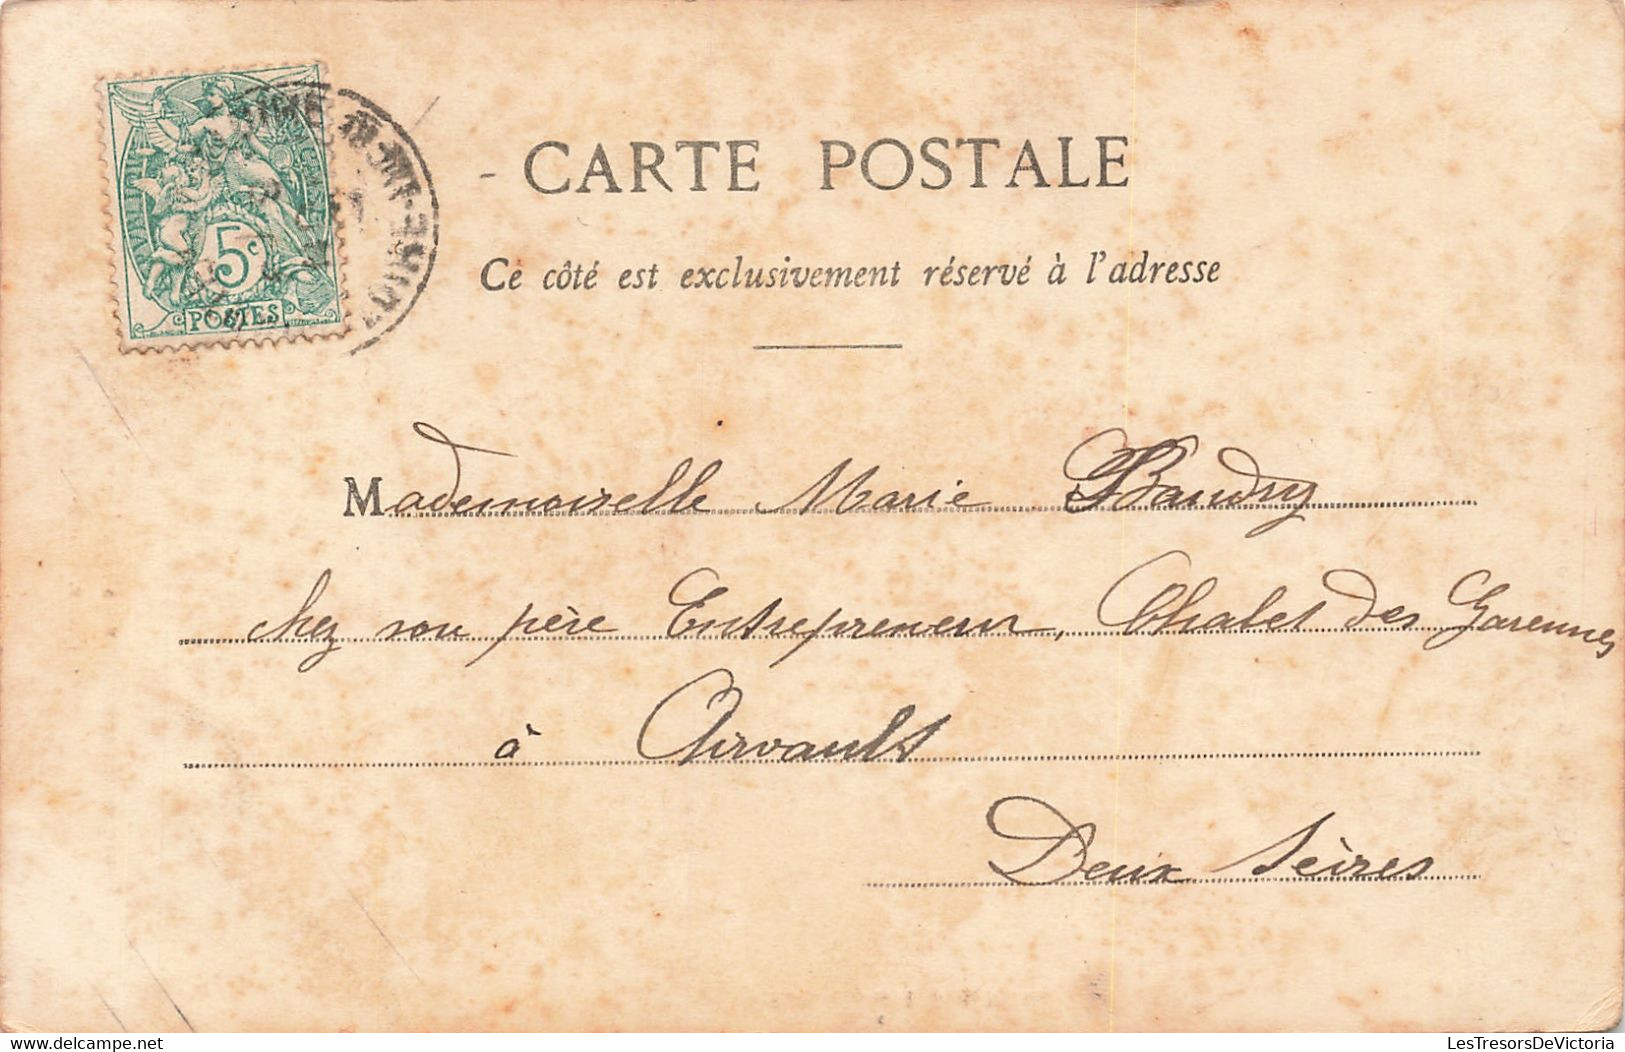 CARTE POSTALE
Ce côté est exclusivement réservé à l'adresse
5c
POSTES
Mademoiselle Marie Baudry
chez son père Entrepreneur, Chalet des Garennes
à Airvault
Deux Sèvres
LesTresorsDeVictoria